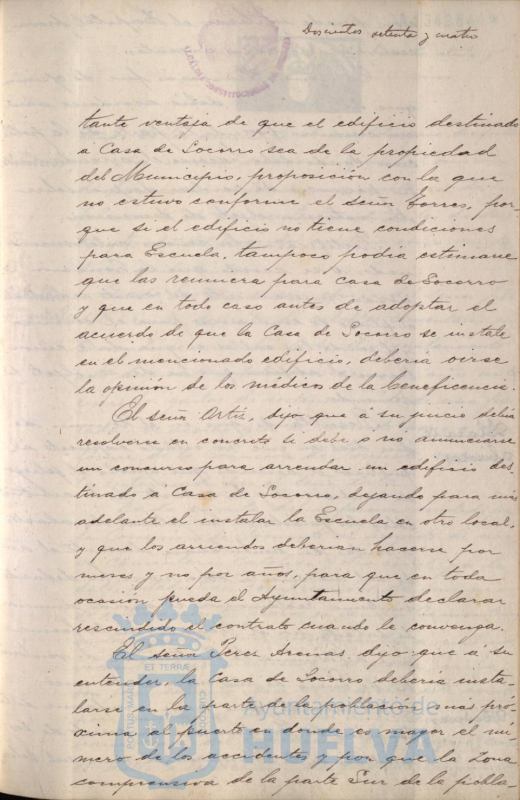 Doscientos setenta y cuatro
tante ventaja de que el edificio destinado
á Casa de Socorro sea de la propiedad
del Municipio, proposición con la que
no estuvo conforme el señor Torres, por-
que si el edificio no tiene condiciones
para Escuela, tampoco podia estimarse
que las reuniera para casa de Socorro
y que en todo caso antes de adoptar el
acuerdo de que la Casa de Socorro se instale
en el mencionado edificio, deberia oirse
la opinión de los médicos de la beneficencia.
El señor Ortiz, dijo que á su juicio debia
resolverse en concreto si debe o no anunciarse
un concurso para arrendar un edificio des-
tinado á Casa de Socorro, dejando para mas
adelante el instalar la Escuela en otro local,
y que los arriendos deberian hacerse por
meses y no por años, para que en toda
ocasión pueda el Ayuntamiento declarar
rescindido el contrato cuando le convenga.
El señor Perez Arenas dijo que á su
entender, la Casa de Socorro deberia insta-
larse en la parte de la población mas pró-
xima al puerto en donde es mayor el nú-
mero de los accidentes y por que la Zona
comprensiva de la parte Sur de la pobla-
ET TERRÆ
PORTUS MARIS
CUSTODIA
Ayuntamiento de
HUELVA